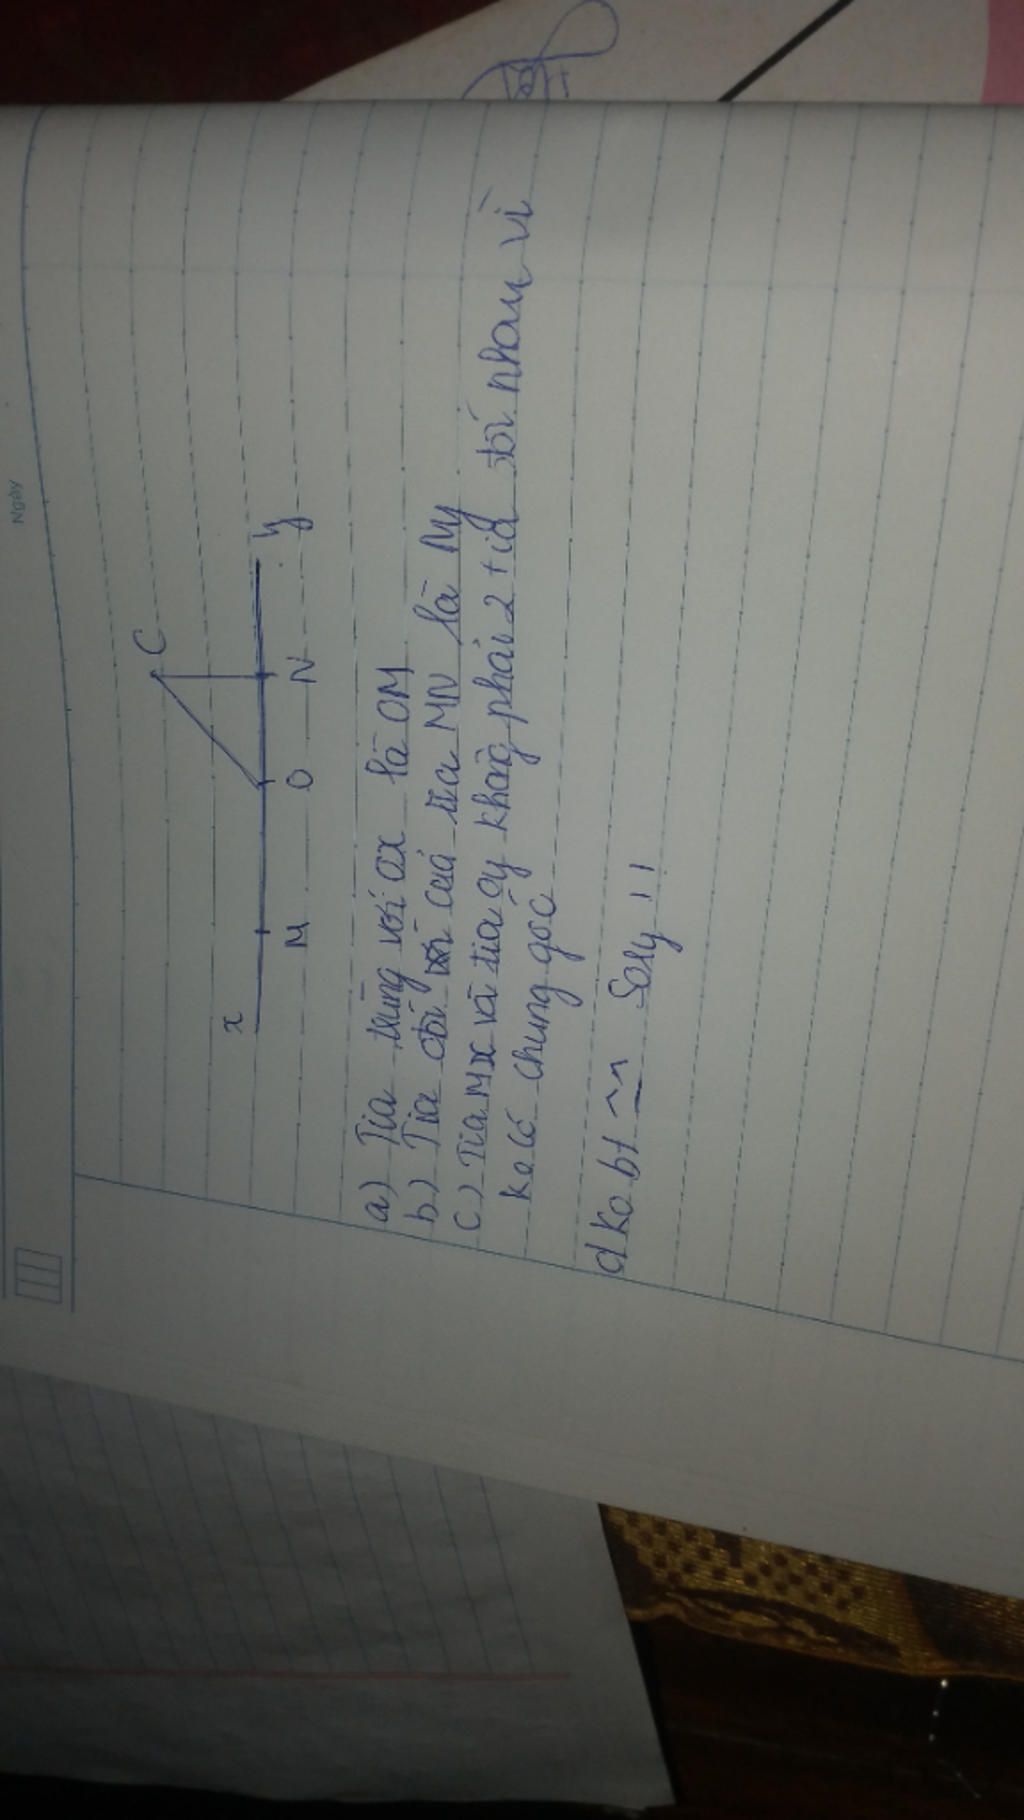 Ngày
C
x
y
M
O
N
a) Tia trùng với Ox là OM
b) Tia đối của tia MN là Ny
c) Tia Mx và tia Oy không phải 2 tia đối nhau vì
ko có chung gốc
d ko bt ^^ Sory !!